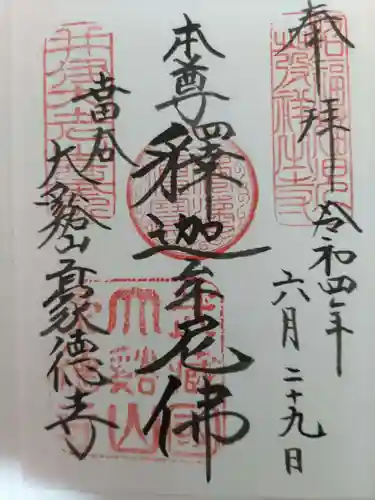 奉拝
令和四年
六月二十九日
本尊
釋迦牟尼佛
世田谷
大谿山豪德寺
大谿山